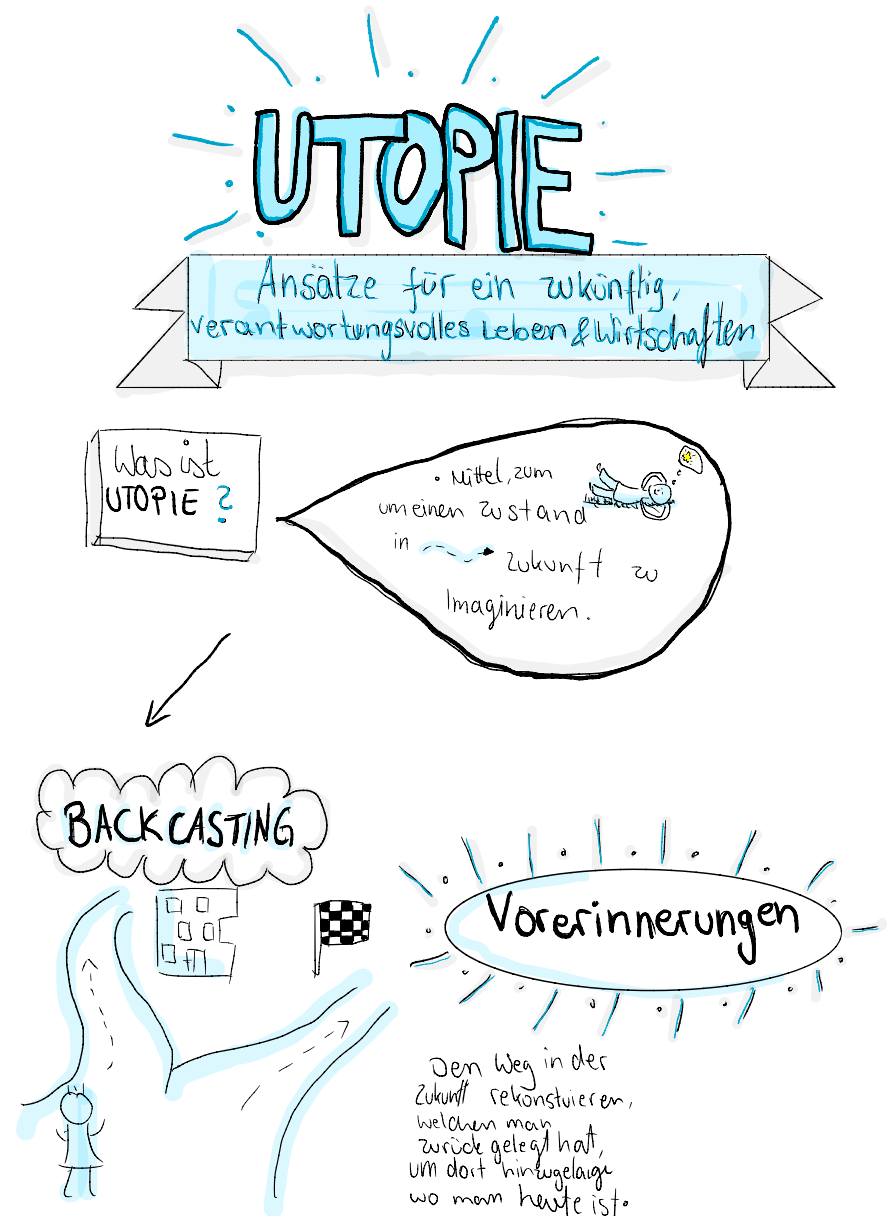 UTOPIE
Ansätze für ein zukünftig,
verantwortungsvolles Leben & Wirtschaften
Was ist
UTOPIE ?
• Mittel, zum
um einen Zustand
in
Zukunft zu
Imaginieren.
BACKCASTING
Vorerinnerungen
Den Weg in der
Zukunft rekonstuieren,
welchen man
zurück gelegt hat,
um dort
wo man heute ist.